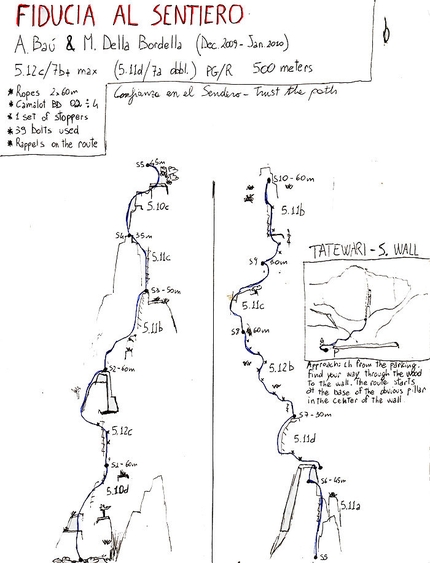 FIDUCIA AL SENTIERO
A. Baú & M. Della Bordella (Dec. 2009 - Jan. 2010)
5.12c/7b+ max (5.11d/7a obbl.) PG/R 500 meters
Confianza en el Sendero - Trust the path
* Ropes 2x60m
* Camalot BD
* 1 set of stoppers
* 39 bolts used
* Rappels on the route
S5
45m
5.10c
S4
35m
5.11c
S3-50m
5.11b
S2-60m
5.12c
S1-60m
5.10d
S10-60m
5.11b
S9
5.11c
S8
60m
5.12b
S7-50m
5.11d
S6-45m
5.11a
S5
TATEWARI - S. WALL
P
Approach: 1h from the parking.
Find your way through the wood
to the wall. The route starts
at the base of the obvious pillar
in the center of the wall